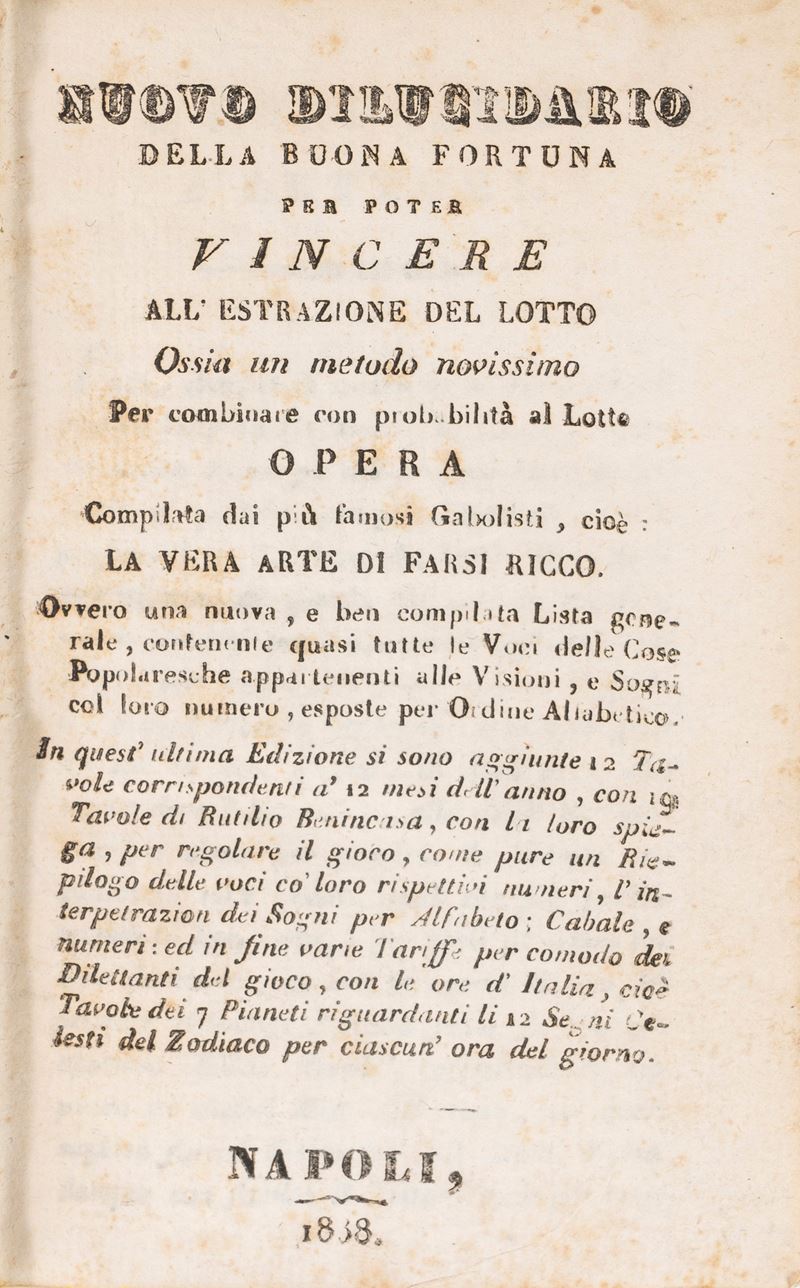 NUOVO DILUCIDARIO
DELLA BUONA FORTUNA
PER POTER
VINCERE
ALL' ESTRAZIONE DEL LOTTO
Ossia un metodo novissimo
Per combinare con probabilità al Lotto
OPERA
Compilata dai più famosi Gabolisti , cioè :
LA VERA ARTE DI FARSI RICCO.
Ovvero una nuova , e ben compilata Lista gene-
rale , contenente quasi tutte le Voci delle Cose
Popolaresche appartenenti alle Visioni , e Sogni
col loro numero , esposte per Ordine Alfabetico.
In quest' ultima Edizione si sono aggiunte 12 Ta-
vole corrispondenti a' 12 mesi dell' anno , con
Tavole di Rutilio Benincasa , con la loro spie-
ga , per regolare il gioco , come pure un Rie-
pilogo delle voci co' loro rispettivi numeri, l' in-
terpetrazion dei Sogni per Alfabeto ; Cabale , e
numeri : ed in fine varie Tariffe per comodo dei
Dilettanti del gioco , con le ore d' Italia , cioè
Tavole dei 7 Pianeti riguardanti li 12 Segni Ce-
lesti del Zodiaco per ciascun' ora del giorno.
NAPOLI,